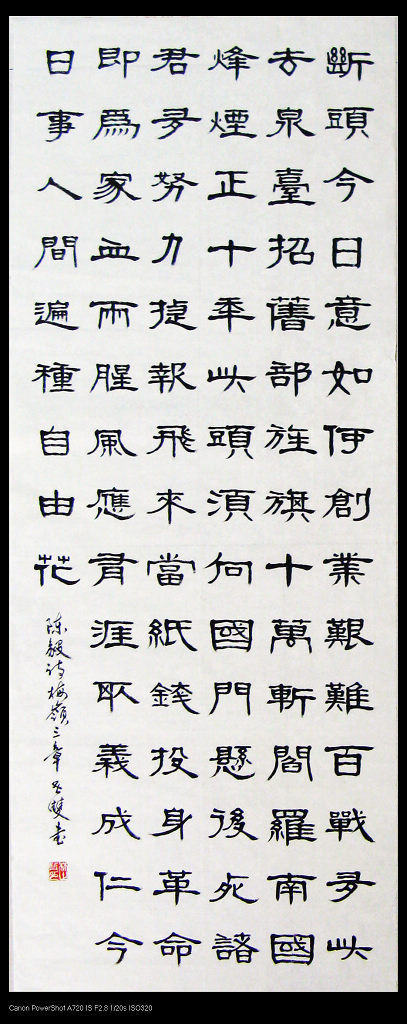 斷頭今日意如何創業艱難百戰多此
去泉臺招舊部旌旗十萬斬閻羅南國
烽煙正十年此頭須向國門懸後死諸
君多努力捷報飛來當紙錢投身革命
即爲家血雨腥風應有涯取義成仁今
日事人間遍種自由花
陈毅诗梅嶺三章 雙書
Canon PowerShot A720 IS F2.8 1/20s ISO320